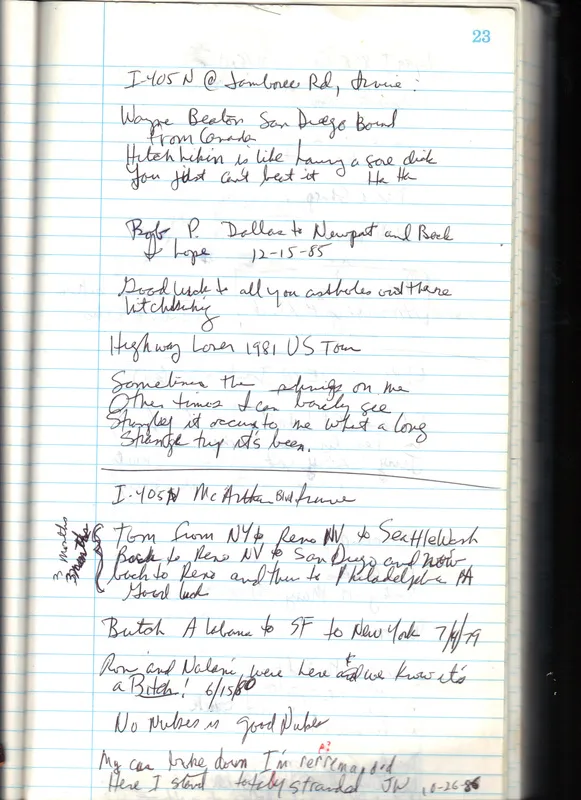 23
I-405 N @ Jamboree Rd, Irvine:
Wayne Beaton San Diego Bound
from Canada
Hitchhikin is like having a sore dick
You just can't beat it Ha Ha
Bob P. Dallas to Newport and Back
I hope 12-15-85
Good luck to all you assholes out there
hitchhiking
Highway Loser 1981 US Tour
Sometimes the shinigs on me
Other times I can barely see
Strangley it occurs to me what a long
Strange trip it's been.
I-405N McArthur Blvd Irvine
3 months
Tom from NY to Reno NV to Seattle Wash
Back to Reno NV to San Diego and now
back to Reno and then to Philadelphia PA
Good luck
Butch Alabama to SF to New York 7/4/79
Ron and Nalani were here & we know it's
a Bitch! 6/15/80
No Nukes is good Nukes
My car broke down I'm
Here I stand totaly stranded JW 10-26-86